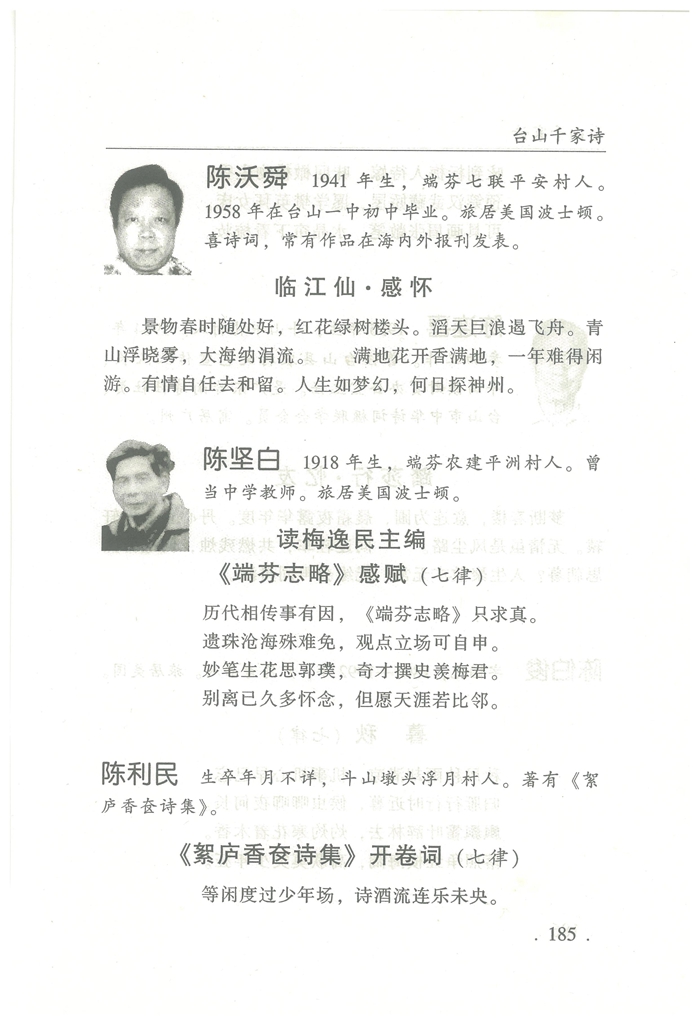 台山千家诗
陈沃舜 1941 年生，端芬七联平安村人。
1958 年在台山一中初中毕业。旅居美国波士顿。
喜诗词，常有作品在海内外报刊发表。
临江仙·感怀
景物春时随处好，红花绿树楼头。滔天巨浪遏飞舟。青
山浮晓雾，大海纳涓流。 满地花开香满地，一年难得闲
游。有情自任去和留。人生如梦幻，何日探神州。
陈坚白 1918 年生，端芬农建平洲村人。曾
当中学教师。旅居美国波士顿。
读梅逸民主编
《端芬志略》感赋（七律）
历代相传事有因，《端芬志略》只求真。
遗珠沧海殊难免，观点立场可自申。
妙笔生花思郭璞，奇才撰史羡梅君。
别离已久多怀念，但愿天涯若比邻。
陈利民 生卒年月不详，斗山墩头浮月村人。著有《絮
庐香奁诗集》。
《絮庐香奁诗集》开卷词（七律）
等闲度过少年场，诗酒流连乐未央。
. 185 .